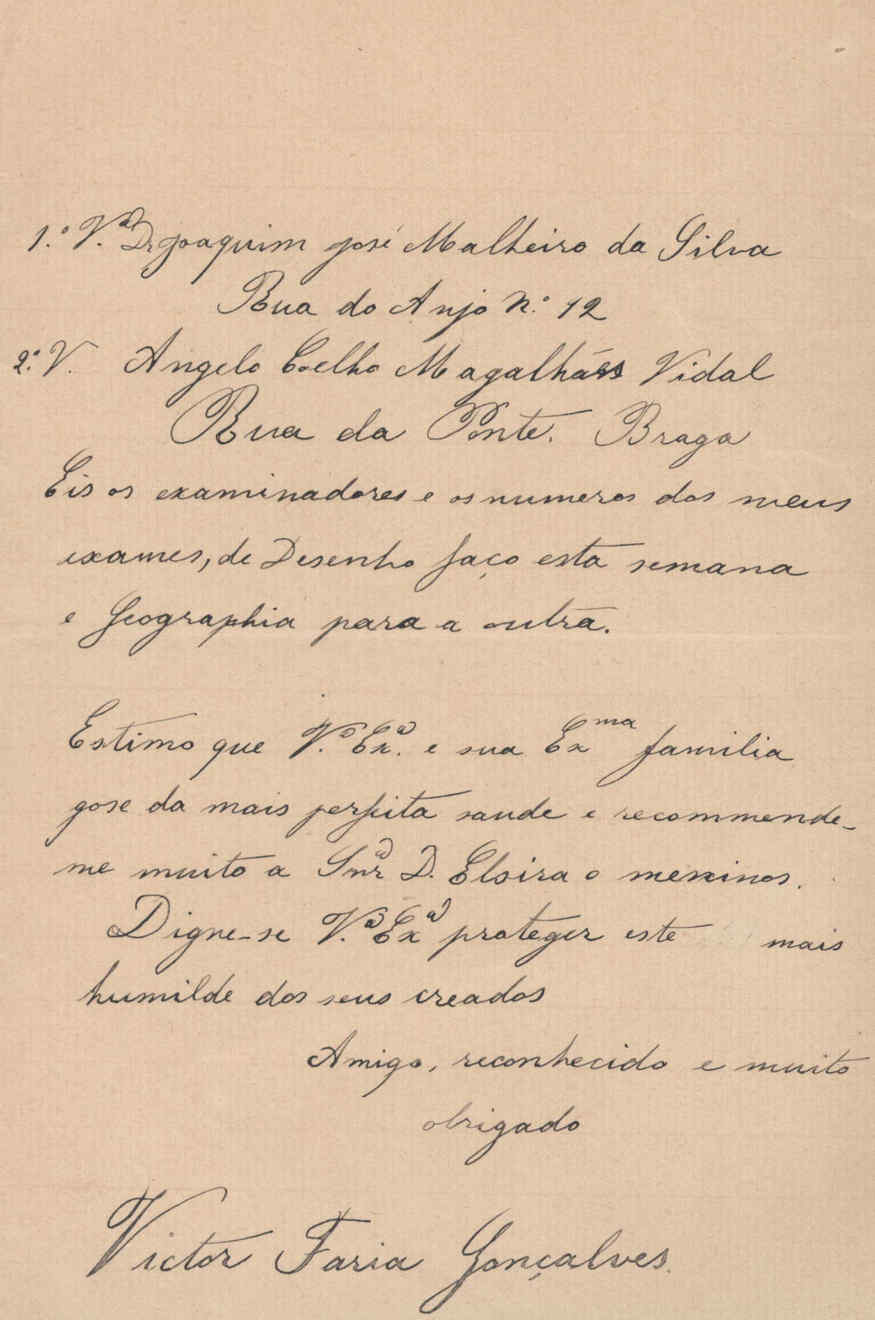 1.º V.al Dr Joaquim José Malheiro da Silva
Rua do Anjo N.º 12
2.º V. Angelo Coelho Magalhães Vidal
Rua da Ponte. Braga
Eis os examinadores e os numeros dos meus
exames, de Desenho faço esta semana
e Geographia para a outra.
Estimo que V.ª Ex.ª e sua Exma familia
gose da mais perfeita saude e recommende-
me muito a Snrª D. Elvira e meninos.
Digne-se V.ª Exª proteger este mais
humilde dos seus creados
Amigo, reconhecido e muito
obrigado
Victor Faria Gonçalves.